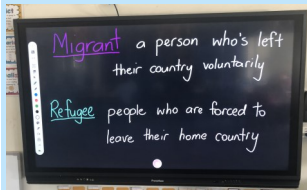 Migrant a person who's left
their country voluntarily
Refugee people who are forced to
leave their home country